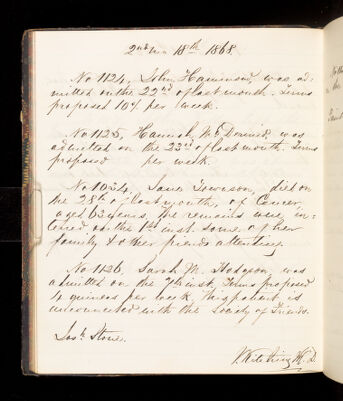 18th 1868.
No 1124, John Hammond, was ad-
mitted on the 22nd of last month. Terms
proposed 10/ per week.
No 1125, Hannah McDonnel, was
admitted on the 23rd of last month. Terms
proposed per week.
No 1034, Jane Towieson, died on
the 28th of last month, of Cancer,
aged 62 years, the remains were in-
terred on the 1st inst. some of her
family & other friends attending.
No 1126, Sarah M. Hodgson, was
admitted on the 7th inst. Terms proposed
4 guineas per week, this patient is
unconnected with the Society of Friends.
Josh. Stone.
Kitching M.D.